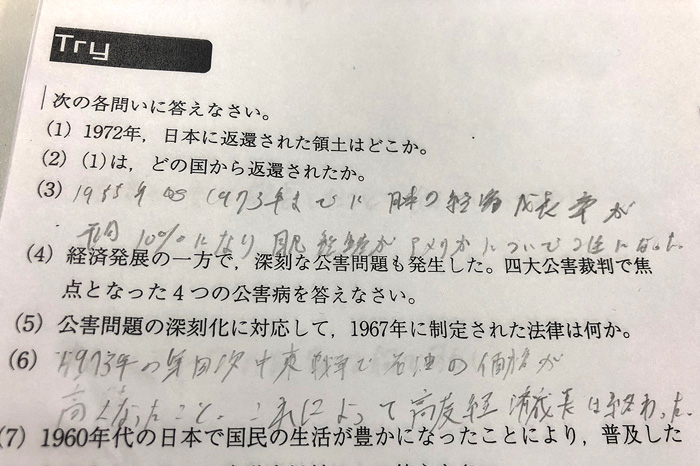 Try
次の各問いに答えなさい。
(1) 1972年，日本に返還された領土はどこか。
(2) (1)は，どの国から返還されたか。
(3) 1955年 1973年までに 日本の経済成長率が
平均 10%になり 経済が アメリカについで2位になった
(4) 経済発展の一方で，深刻な公害問題も発生した。四大公害裁判で焦
点となった4つの公害病を答えなさい。
(5) 公害問題の深刻化に対応して，1967年に制定された法律は何か。
(6) 1973年の第四次中東戦争で 石油の価格が
高くなったこと。これによって高度経済成長は終わった。
(7) 1960年代の日本で国民の生活が豊かになったことにより，普及した